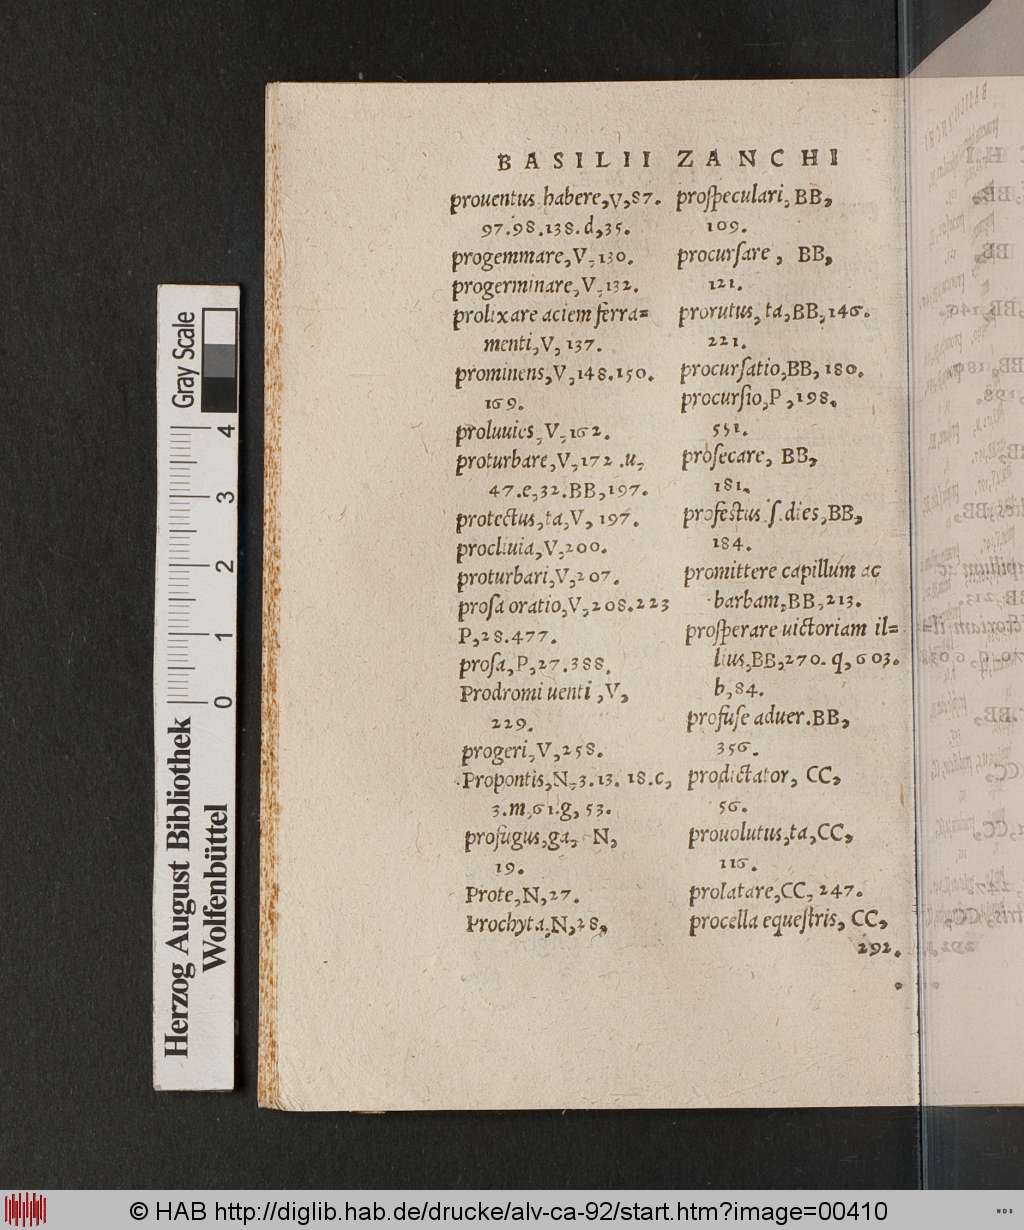 BASILII ZANCHI
prouentus habere, V, 87.
97.98.138.d, 35.
progemmare, V, 130.
progerminare, V, 132.
prolixare aciem ferra=
menti, V, 137.
prominens, V, 148.150.
169.
proluuies, V, 162.
proturbare, V, 172.u,
47.e, 32.BB, 197.
protectus, ta, V, 197.
procliuia, V, 200.
proturbari, V, 207.
prosa oratio, V, 208.223
P, 28.477.
prosa, P, 27.388.
Prodromi uenti, V,
229.
progeri, V, 258.
Propontis, N, 3.13. 18.c,
3.m, 61.g, 53.
profugus, ga, N,
19.
Prote, N, 27.
Prochyta, N, 28,
prospeculari, BB,
109.
procursare, BB,
121.
prorutus, ta, BB, 146.
221.
procursatio, BB, 180.
procursio, P, 198.
551.
prosecare, BB,
181.
profestus .s. dies, BB,
184.
promittere capillum ac
barbam, BB, 213.
prosperare uictoriam il=
lius, BB, 270. q, 603.
b, 84.
profuse aduer. BB,
356.
prodictator, CC,
56.
prouolutus, ta, CC,
116.
prolatare, CC, 247.
procella equestris, CC,
292.
Gray Scale
0 1 2 3 4
Herzog August Bibliothek
Wolfenbüttel
© HAB http://diglib.hab.de/drucke/alv-ca-92/start.htm?image=00410